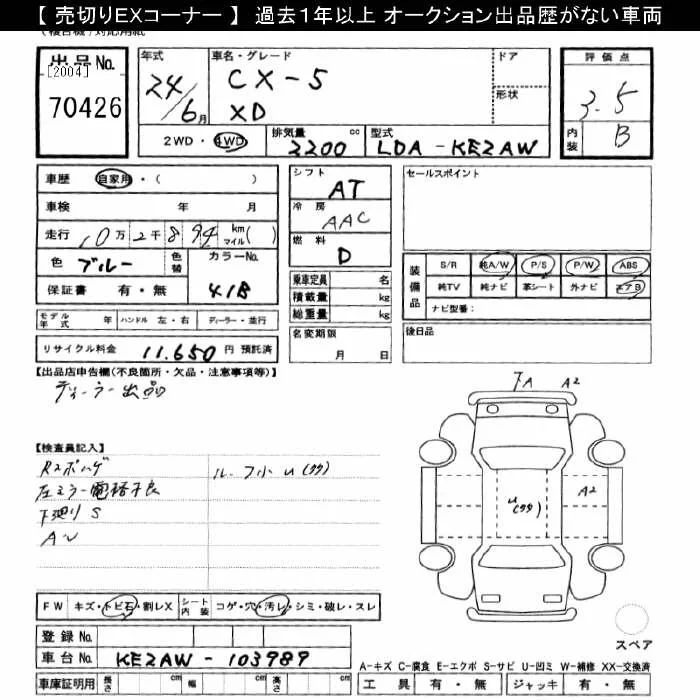 【 売切りEXコーナー 】 過去1年以上 オークション出品歴がない車両
出品No. [2004] 70426
年式 24/6月
車名・グレード CX-5 XD
ドア
形状
評価点 3.5
内装 B
2WD・4WD 排気量 2200 cc 型式 LDA-KE2AW
車歴 自家用・( )
車検 年 月
走行 10万2千8 94 km マイル( )
色 ブルー 色替 カラーNo. 41B
保証書 有・無
モデル年式 年 ハンドル 左・右 ディーラー・並行
リサイクル料金 11,650 円 預託済
シフト AT
冷房 AAC
燃料 D
乗車定員 名
積載量 kg
総重量 kg
名変期限 月 日
セールスポイント
装備品 S/R 純A/W P/S P/W ABS
純TV 純ナビ 革シート 外ナビ エアB
ナビ型番:
後日品
【出品店申告欄(不良箇所・欠品・注意事項等)】
ディーラー出品
【検査員記入】
R2ポハゲ
左ミラー電格不良
下廻り S
A・U
ルーフ小U(タタ)
下A A2
U(タタ)
A2
FW キズ・トビ石・割レX シート内装 コゲ・穴・汚レ・シミ・破レ・スレ
登録No.
車台No. KE2AW-103989
車庫証明用 長さ cm 幅 cm 高さ cm
スペア
A-キズ C-腐食 E-エクボ S-サビ U-凹ミ W-補修 XX-交換済
工具 有・無 ジャッキ 有・無